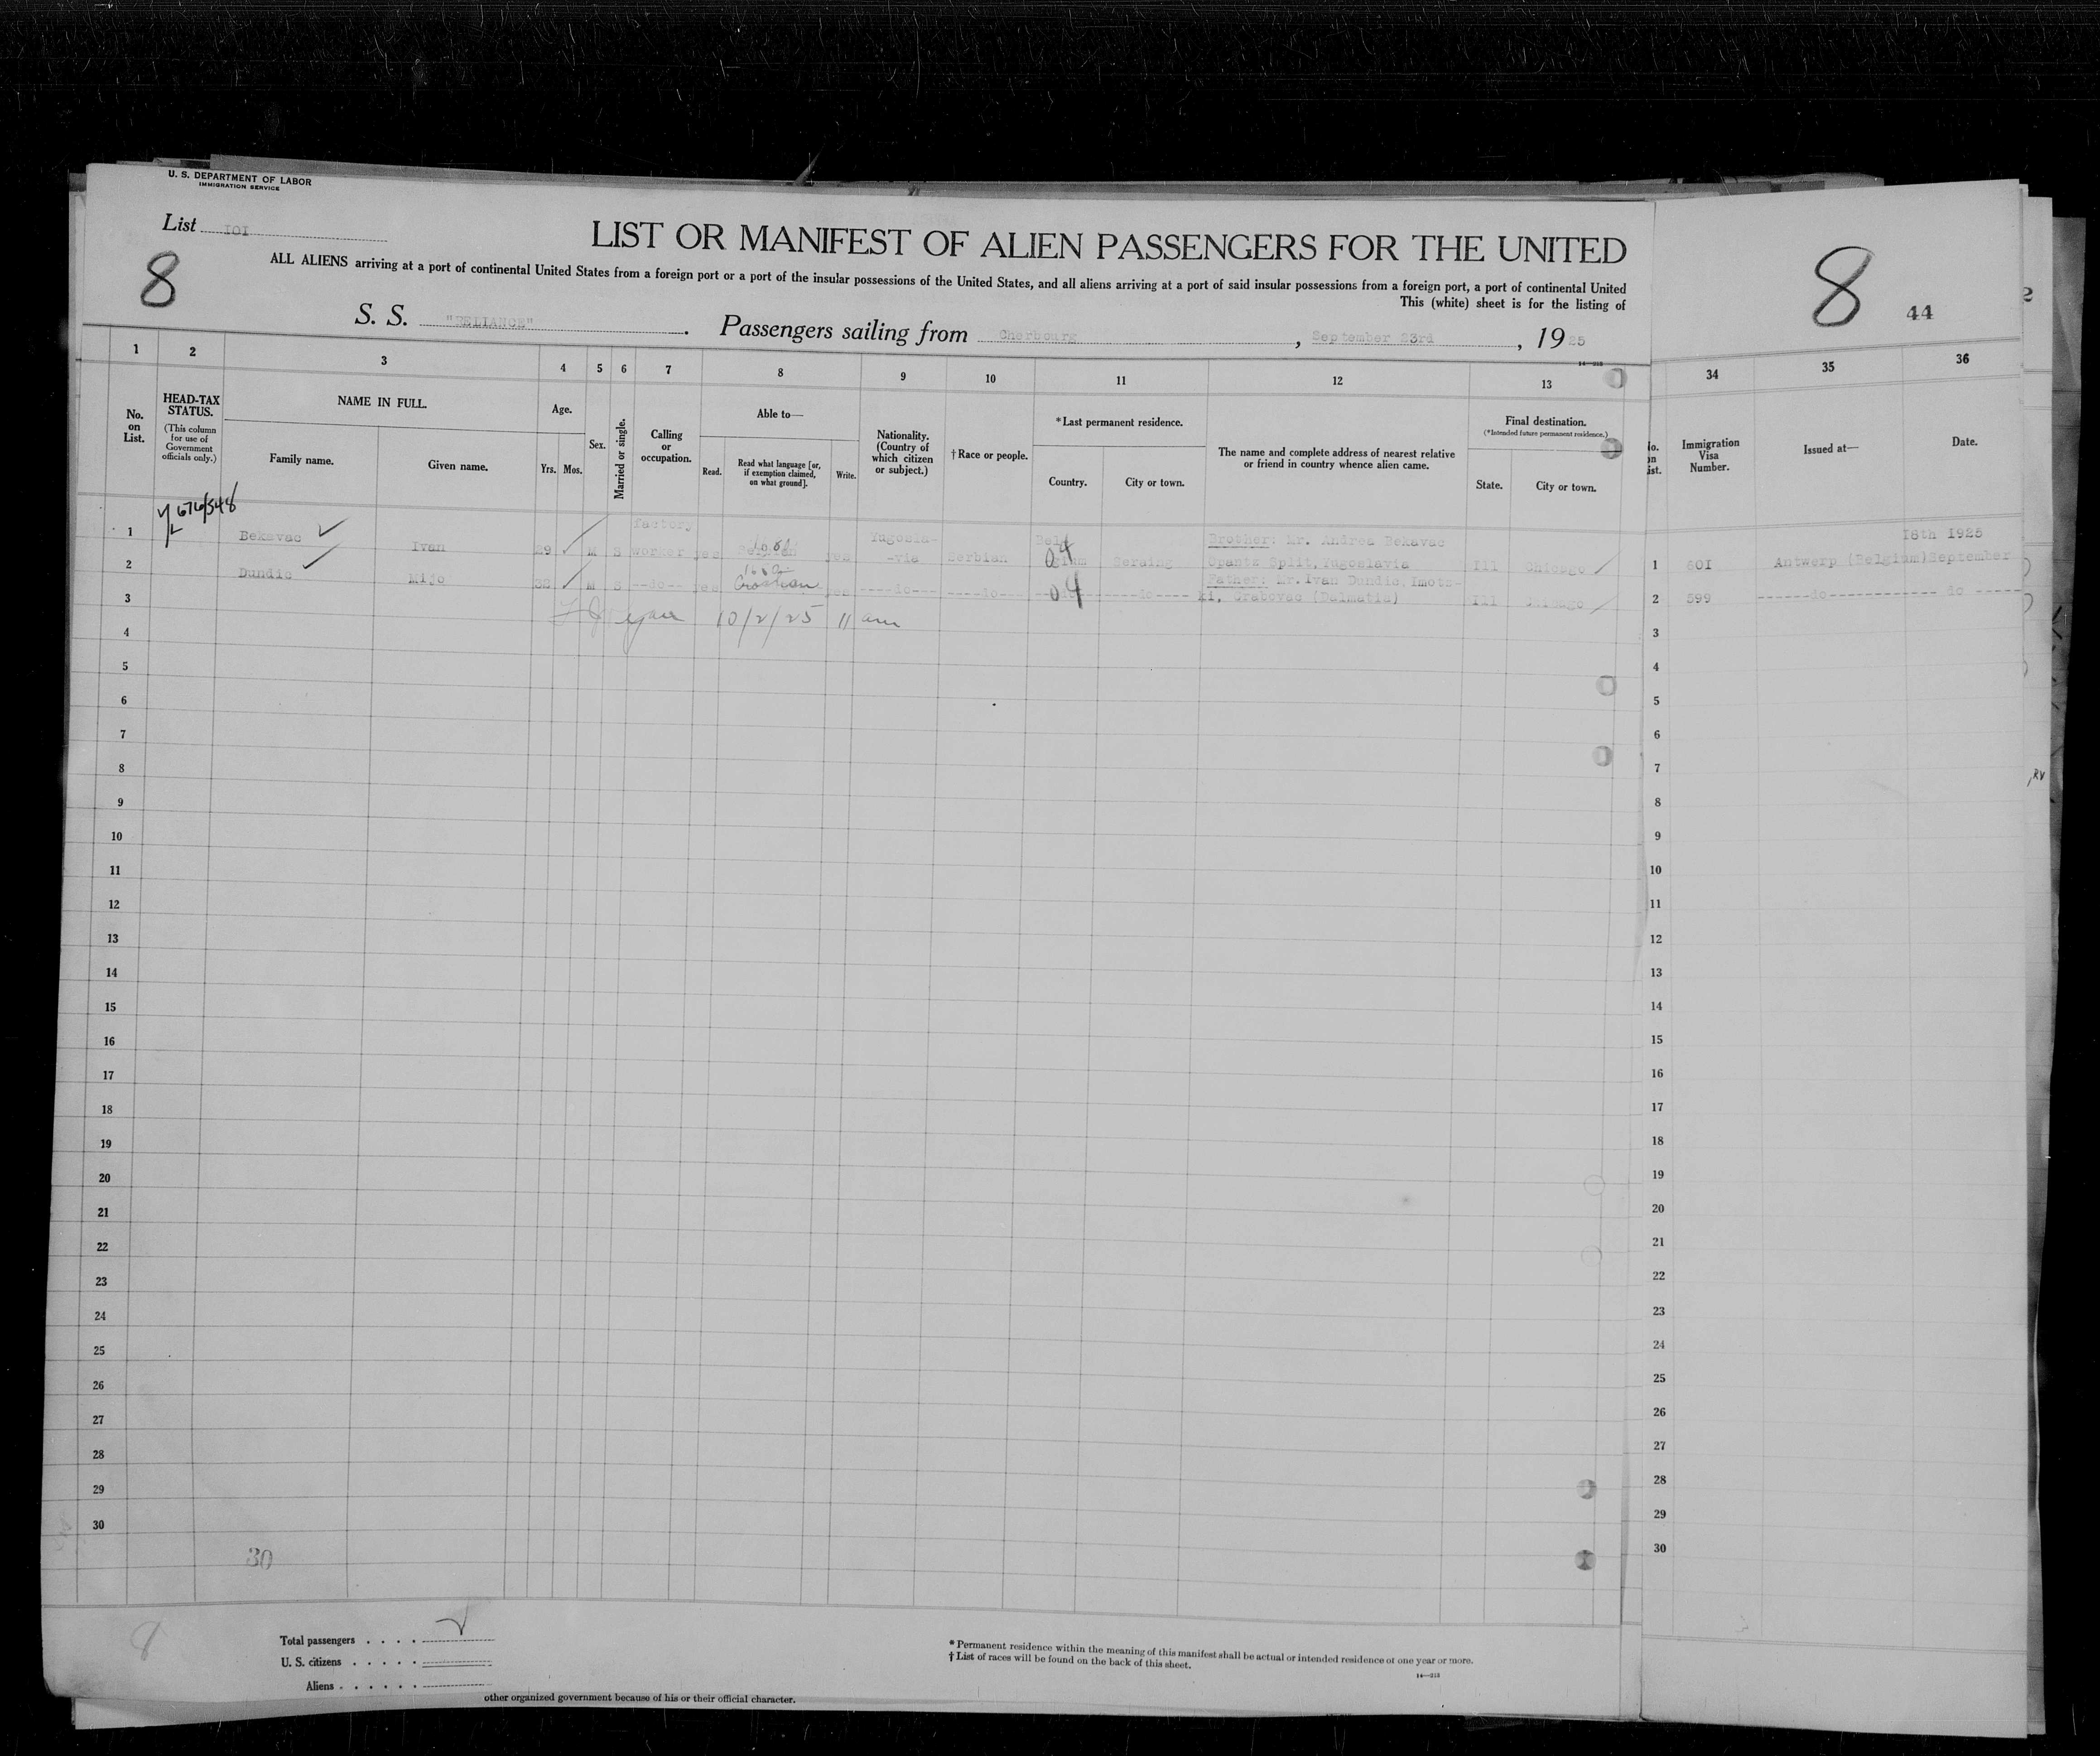 U. S. DEPARTMENT OF LABOR
IMMIGRATION SERVICE
List IOI
8
LIST OR MANIFEST OF ALIEN PASSENGERS FOR THE UNITED
ALL ALIENS arriving at a port of continental United States from a foreign port or a port of the insular possessions of the United States, and all aliens arriving at a port of said insular possessions from a foreign port, a port of continental United
This (white) sheet is for the listing of
S. S. "RELIANCE". Passengers sailing from Cherbourg, September 23rd, 1925
8 44
1 2 3 4 5 6 7 8 9 10 11 12 13 34 35 36
No. on List.
HEAD-TAX STATUS.
(This column for use of Government officials only.)
NAME IN FULL.
Family name. Given name.
Age.
Yrs. Mos.
Sex.
Married or single.
Calling or occupation.
Able to—
Read. Read what language [or, if exemption claimed, on what ground]. Write.
Nationality. (Country of which citizen or subject.)
†Race or people.
*Last permanent residence.
Country. City or town.
The name and complete address of nearest relative or friend in country whence alien came.
Final destination.
(*Intended future permanent residence.)
State. City or town.
Immigration Visa Number.
Issued at—
Date.
676/548
1 Bekavac Ivan 29 M S factory worker yes yes Yugosla-
-via Serbian Belgium Seraing Brother: Mr. Andrea Bekavac
Split, Yugoslavia Ill Chicago
1 601 Antwerp (Belgium) September 18th 1925
2 Dundic Mijo M S --do-- yes Croatian yes ----do---- ----do---- ----do---- Father: Mr. Ivan Dundic, Imots-
ki, Grabovac (Dalmatia) Ill Chicago
2 599 ------do------------ do -----
10/2/25 11 am
3
4
5
6
7
8
9
10
11
12
13
14
15
16
17
18
19
20
21
22
23
24
25
26
27
28
29
30
3
4
5
6
7
8
9
10
11
12
13
14
15
16
17
18
19
20
21
22
23
24
25
26
27
28
29
30
30
8
Total passengers
U. S. citizens
Aliens
* Permanent residence within the meaning of this manifest shall be actual or intended residence of one year or more.
† List of races will be found on the back of this sheet.
14—213
other organized government because of his or their official character.